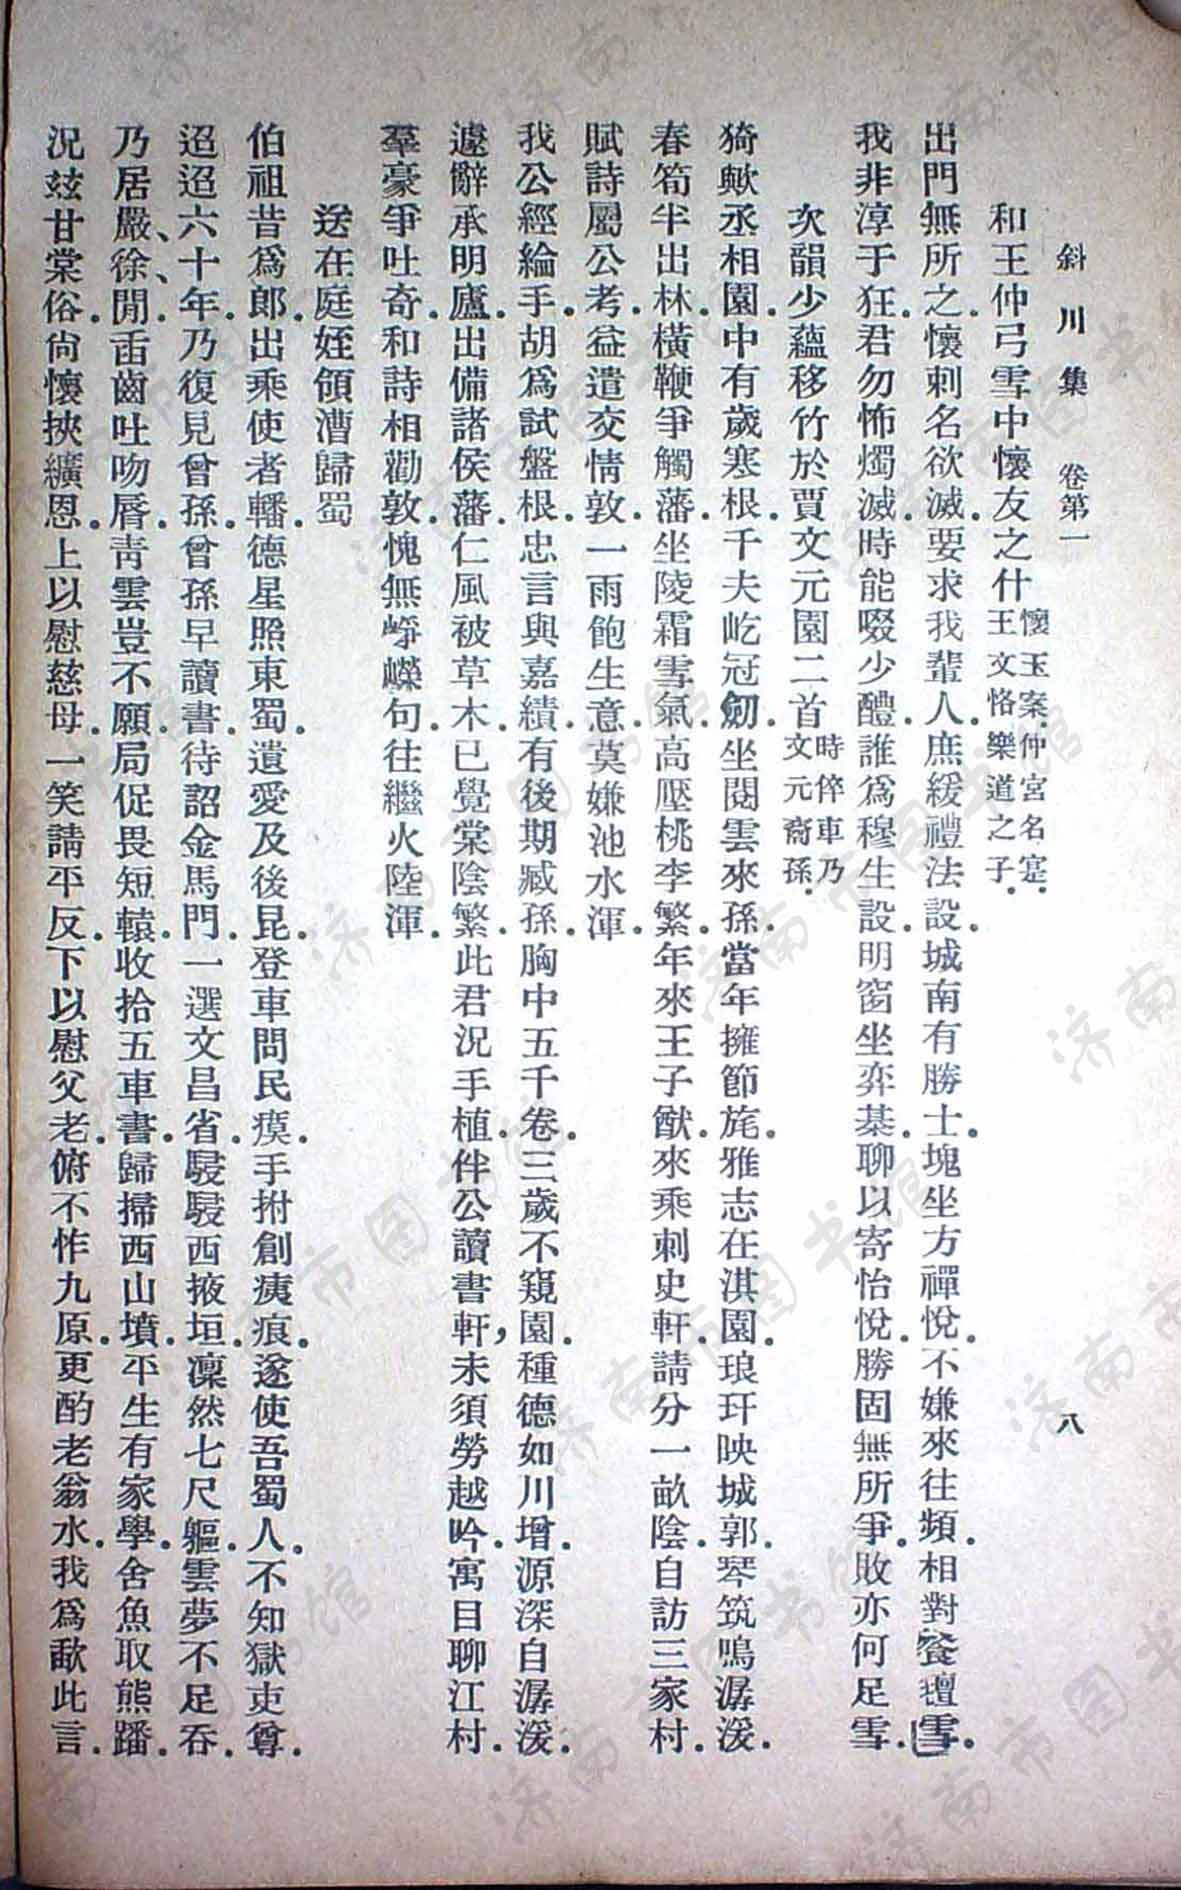 斜川集 卷第一 八
和王仲弓雪中懷友之什懷玉案.仲宮名寔.王文恪樂道之子.
出門無所之.懷刺名欲滅.要求我輩人.庶緩禮法設.城南有勝士.塊坐方禪悅.不嫌來往頻.相對餐氊雪.
我非淳于狂.君勿怖燭滅.時能啜少醴.誰爲穆生設.明窗坐弈棊.聊以寄怡悅.勝固無所爭.敗亦何足雪.
次韻少蘊移竹於賈文元園二首時倅車乃文元裔孫.
猗歟丞相園.中有歲寒根.千夫屹冠劒.坐閱雲來孫.當年擁節旄.雅志在淇園.琅玕映城郭.琴筑鳴潺湲.
春筍半出林.橫鞭爭觸藩.坐陵霜雪氣.高壓桃李繁.年來王子猷.來乘刺史軒.請分一畝陰.自訪三家村.
賦詩屬公考.益遣交情敦.一雨飽生意.莫嫌池水渾.
我公經綸手.胡爲試盤根.忠言與嘉績.有後期臧孫.胸中五千卷.三歲不窺園.種德如川增.源深自潺湲.
遽辭承明廬.出備諸侯藩.仁風被草木.已覺棠陰繁.此君況手植.伴公讀書軒,未須勞越吟.寓目聊江村.
羣豪爭吐奇.和詩相勸敦.愧無崢嶸句.往繼火陸渾.
送在庭姪領漕歸蜀
伯祖昔爲郎.出乘使者轓.德星照東蜀.遺愛及後昆.登車問民瘼.手拊創痍痕.遂使吾蜀人.不知獄吏尊.
迢迢六十年.乃復見曾孫.曾孫早讀書.待詔金馬門.一選文昌省.駸駸西掖垣.凜然七尺軀.雲夢不足吞.
乃居嚴、徐、閒.臿齒吐吻脣.靑雲豈不願.局促畏短轅.收拾五車書.歸掃西山墳.平生有家學.舍魚取熊蹯.
況玆甘棠俗.尙懷挾纊恩.上以慰慈母.一笑請平反.下以慰父老.俯不怍九原.更酌老翁水.我爲歃此言.